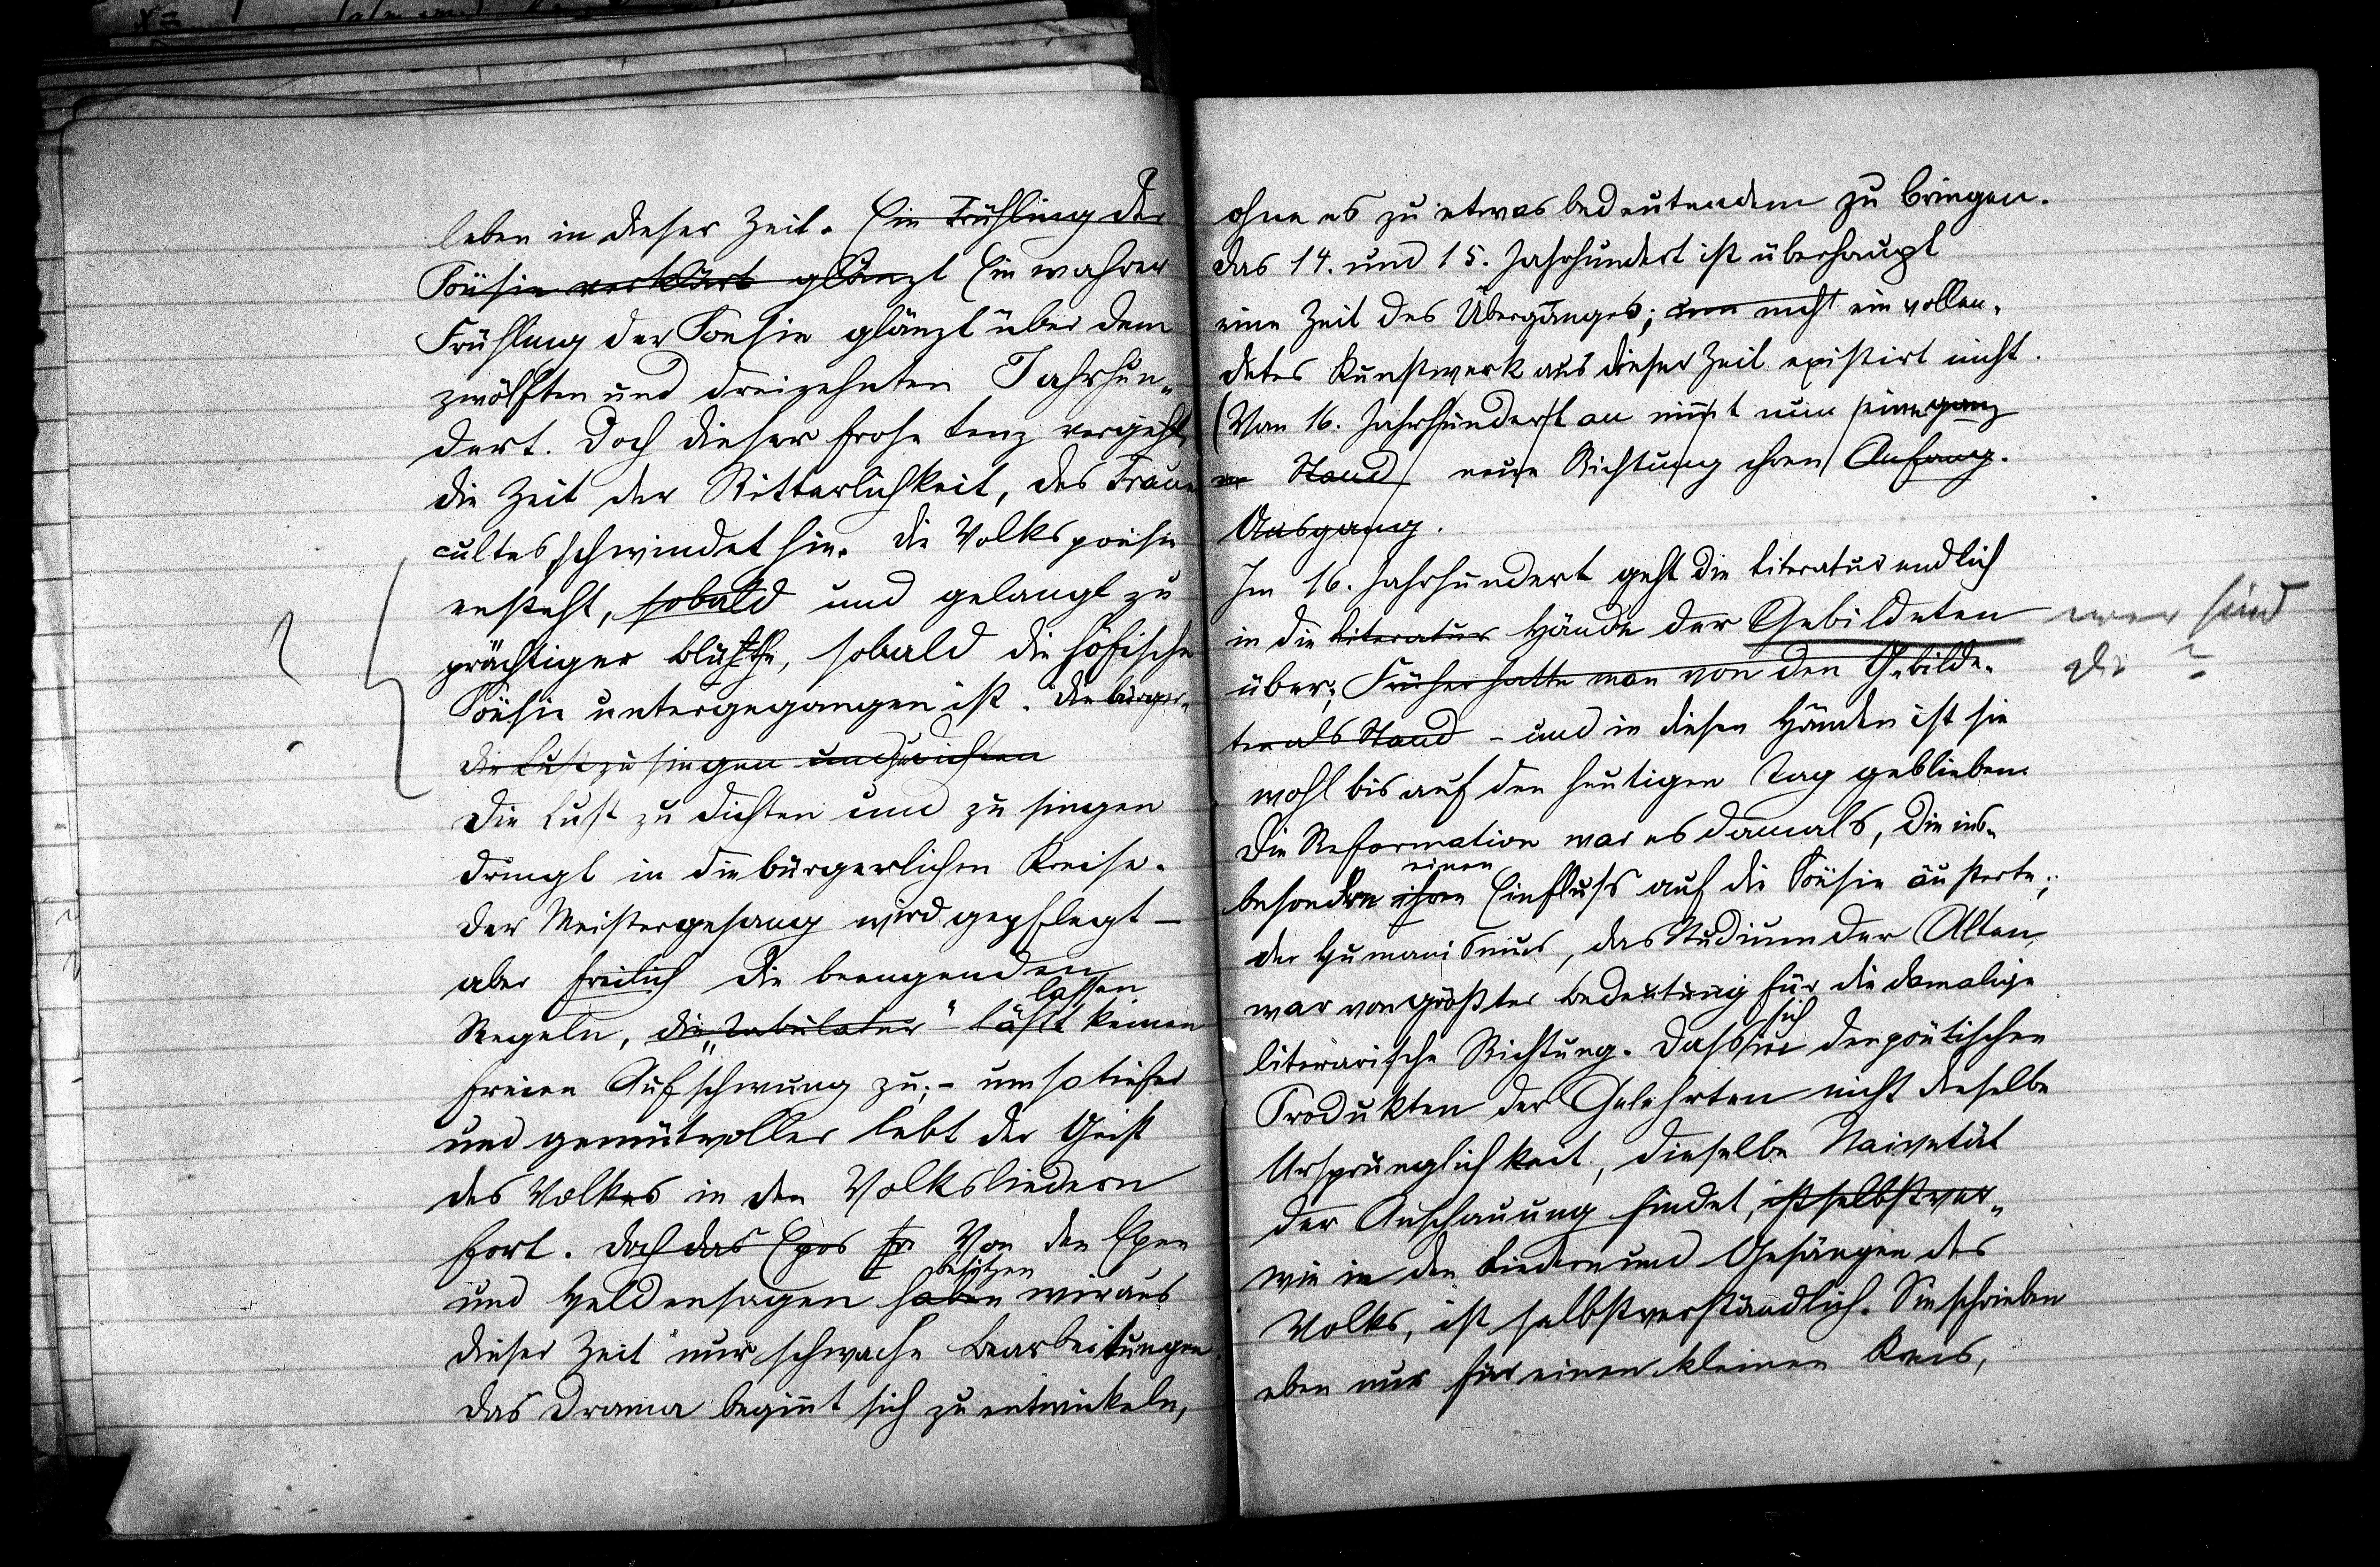 leben in dieser Zeit. Ein Frühling der
Poesie verklärt glänzt Ein wahrer
Frühling der Poesie glänzt über dem
zwölften und dreizehnten Jahrhun-
dert. Doch dieser frohe Lenz vergeht,
die Zeit der Ritterlichkeit, des Frauen
cultes schwindet hin. Die Volkspoesie
ensteht, sobald und gelangt zu
prächtiger Blüthe, sobald die höfische
Poësie untergegangen ist. Die bürger-
die Lust zu singen und zu dichten
Die Lust zu dichten und zu singen
dringt in die bürgerlichen Kreise.
Der Meistergesang wird gepflegt –
aber freilich die beengenden
lassen
Regeln, die „Tabulatur“ läßt keinen
freien Aufschwung zu; – um so tiefer
und gemütvoller lebt der Geist
des Volkes in den Volksliedern
fort. Doch das Epos Von den Epen
besitzen
und Heldensagen haben wir aus
dieser Zeit nur schwache Bearbeitungen.
Das Drama beginnt sich zu entwickeln,
?
ohne es zu etwas bedeutendem zu bringen.
Das 14. und 15. Jahrhundert ist überhaupt
eine Zeit des Überganges; nicht ein vollen-
detes Kunstwerk aus dieser Zeit existirt nicht.
(Vom 16. Jahrhundert an nimmt nun eine ganz
Stand neue Richtung ihren Anfang.
Ausgang.
Im 16. Jahrhundert geht die Literatur endlich
in die Literatur Hände der Gebildeten
über; Früher hatte man von den Gebilde-
ten als Stand – und in diesen Händen ist sie
wohl bis auf den heutigen Tag geblieben.
Die Reformation war es damals, die ins-
einen
besondere ihren Einfluss auf die Poësie äusserte;
der Humanismus, das Studium der Alten,
war von größter Bedeutung für die damalige
sich
literarische Richtung. Dass in den poëtischen
Produkten der Gelehrten nicht dieselbe
Ursprünglichkeit, dieselbe Naivetät
der Anschauung findet, ist selbstver-
wie in den Liedern und Gesängen des
Volks, ist selbstverständlich. Sie schrieben
eben nur für einen kleinen Kreis,
wer sind
die?